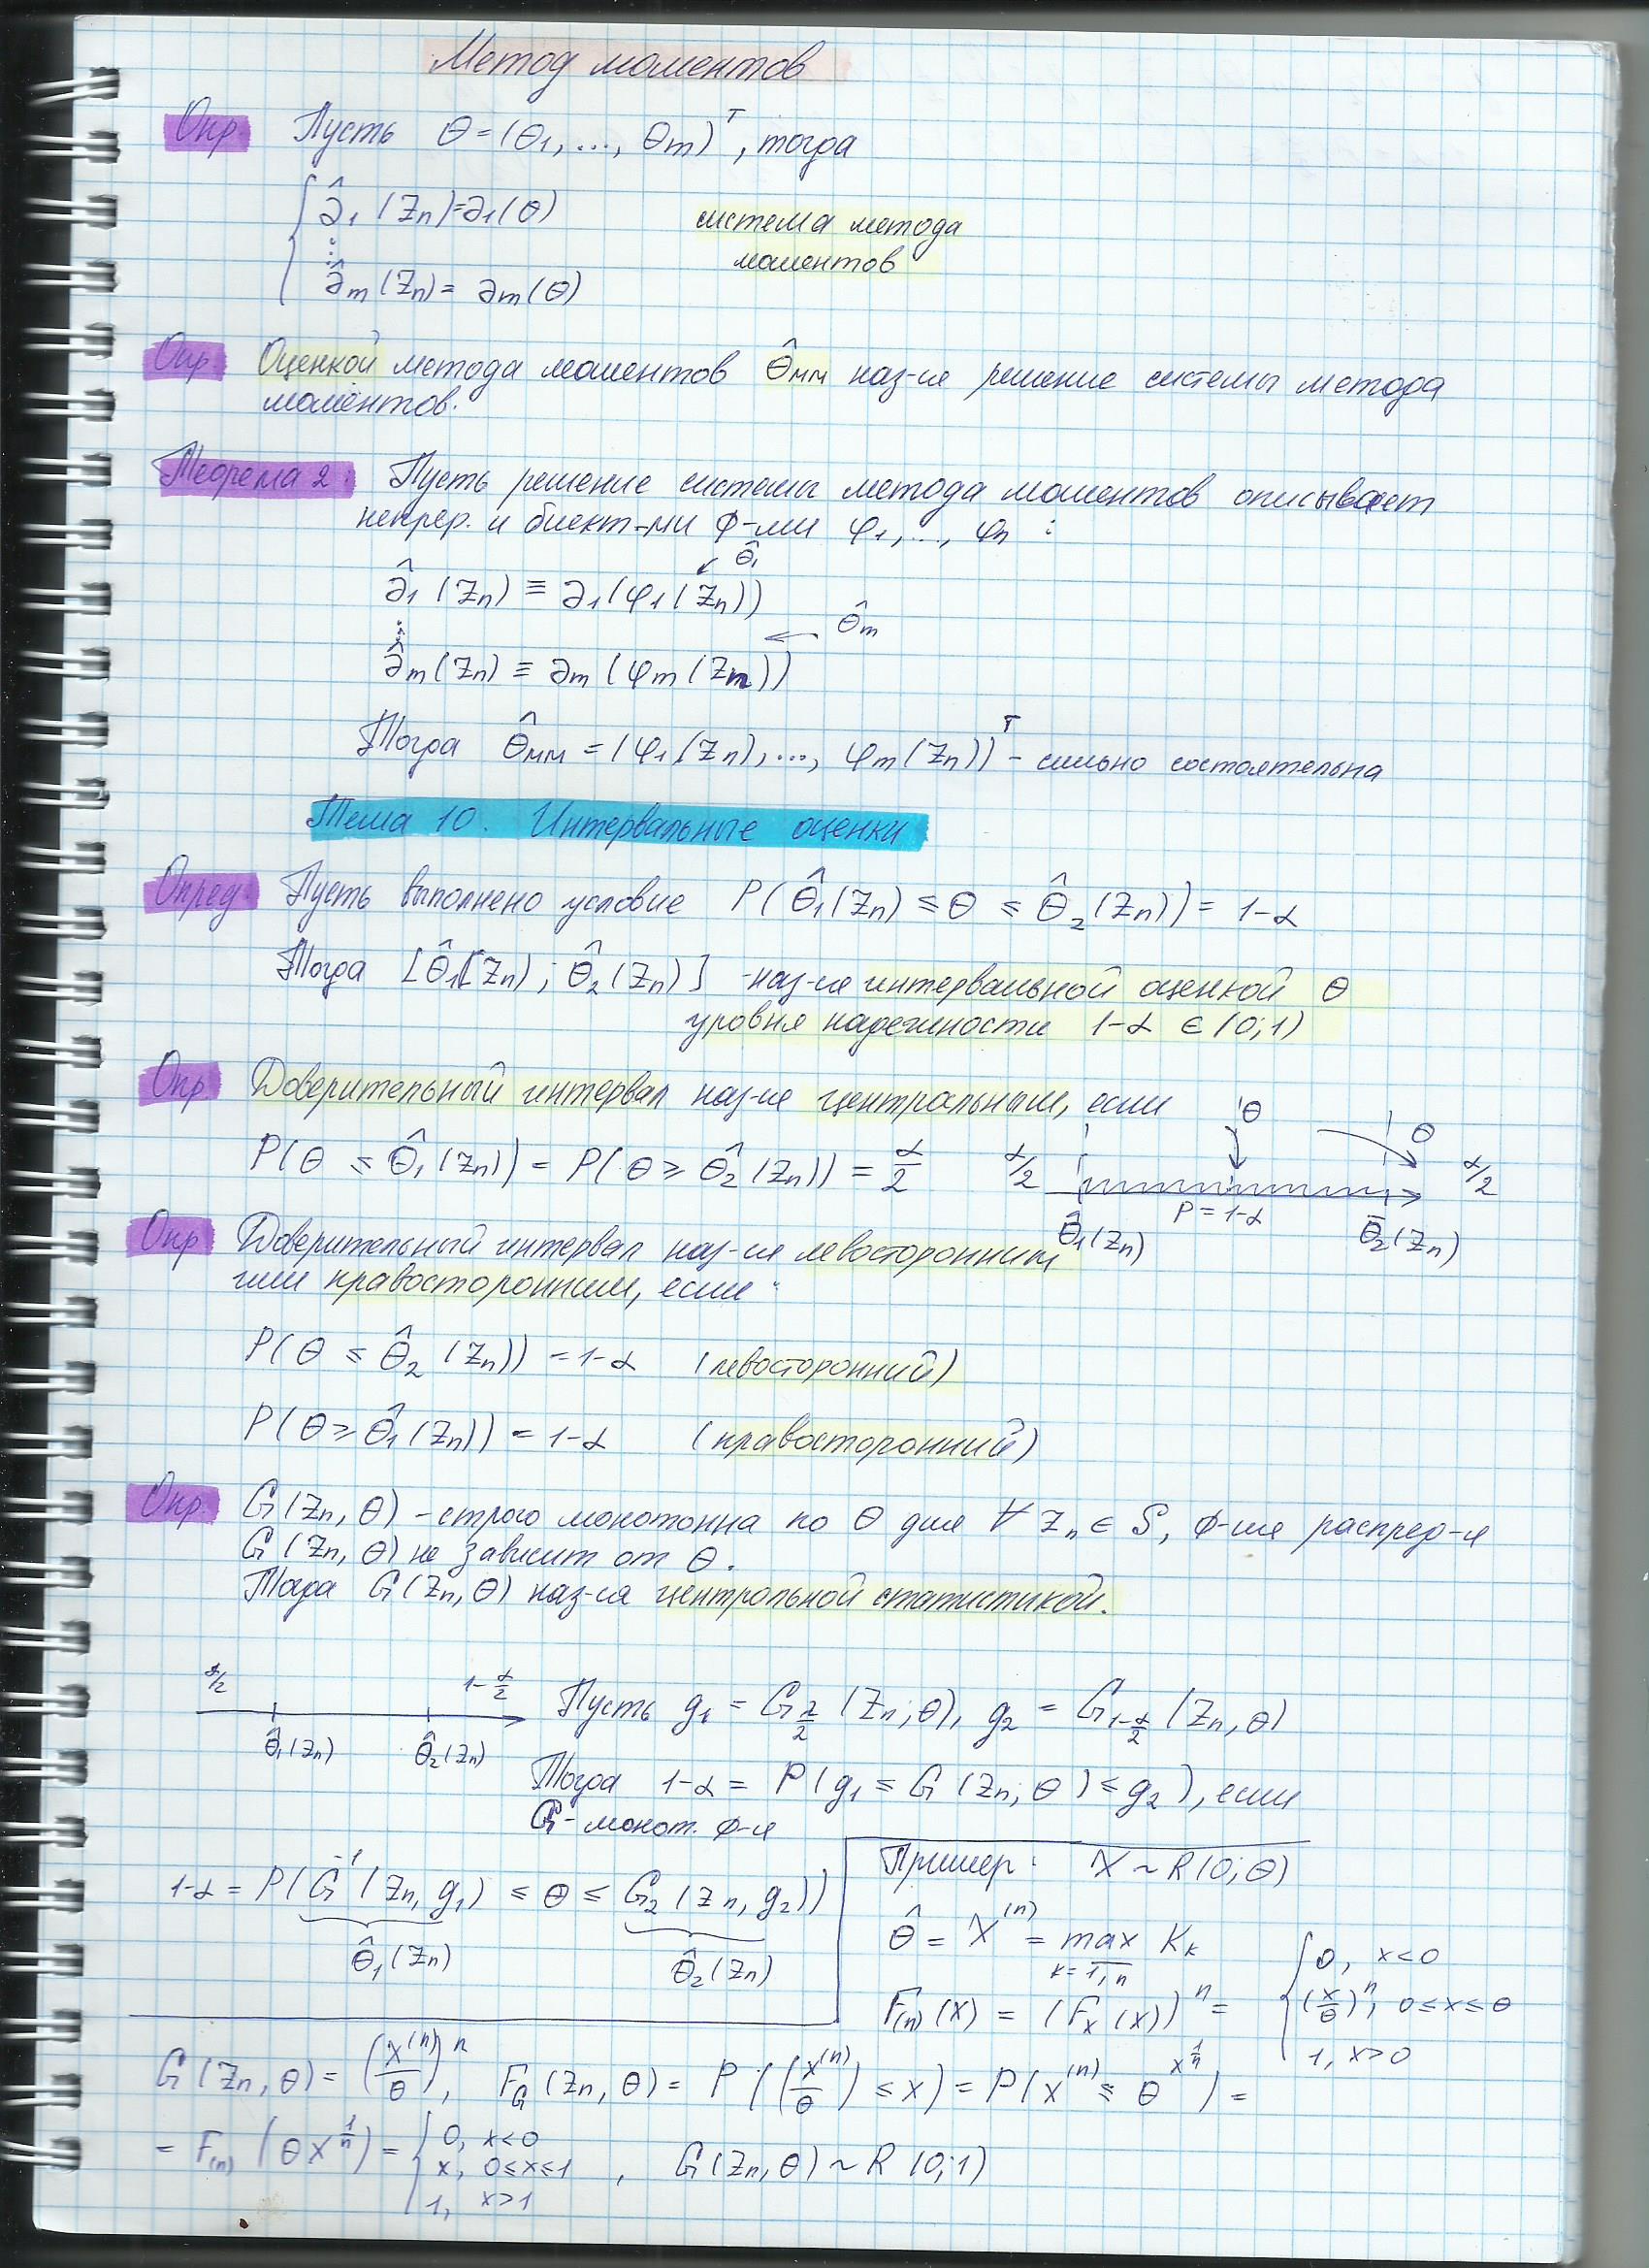 Метод моментов
Опр. Пусть θ=(θ1,..., θm)ᵀ, тогда
{ ∂̂1 (Zn)=∂1(θ)
⋮
∂̂m (Zn)= ∂m(θ)
система метода
моментов
Опр. Оценкой метода моментов θ̂мм наз-ся решение системы метода
моментов.
Теорема 2. Пусть решение системы метода моментов описывает
непрер. и биект-ми ф-ми φ1,..., φn :
∂̂1 (Zn) ≡ ∂1(φ1(Zn)) ↙ θ̂1
⋮
∂̂m(Zn) ≡ ∂m (φm(Zn)) ← θ̂m
Тогда θ̂мм = (φ1(Zn),..., φm(Zn))ᵀ - сильно состоятельна
Тема 10. Интервальные оценки
Опред. Пусть выполнено условие P(θ̂1(Zn) ≤ θ ≤ θ̂2(Zn)) = 1-α
Тогда [θ̂1(Zn); θ̂2(Zn)] -наз-ся интервальной оценкой θ
уровня надежности 1-α ∈ (0;1)
Опр. Доверительный интервал наз-ся центральным, если
P(θ ≤ θ̂1(Zn)) = P(θ ≥ θ̂2(Zn)) = α/2
θ
θ
α/2
α/2
P=1-α
θ̂1(Zn)
θ̂2(Zn)
Опр Доверительный интервал наз-ся левосторонним
или правосторонним, если:
P(θ ≤ θ̂2 (Zn)) = 1-α (левосторонний)
P(θ ≥ θ̂1(Zn)) = 1-α (правосторонний)
Опр. G(Zn, θ) - строго монотонна по θ для ∀ Zn ∈ S, ф-ия распред-я
G(Zn, θ) не зависит от θ.
Тогда G(Zn, θ) наз-ся центральной статистикой.
α/2
1-α/2
θ̂1(Zn)
θ̂2(Zn)
Пусть g1 = G_{α/2} (Zn; θ), g2 = G_{1-α/2} (Zn, θ)
Тогда 1-α = P(g1 ≤ G (Zn; θ) ≤ g2), если
G - монот. ф-я
1-α = P(G⁻¹(Zn, g1) ≤ θ ≤ G2 (Zn, g2))
θ̂1(Zn)
θ̂2(Zn)
Пример: X ~ R(0; θ)
θ̂ = X⁽ⁿ⁾ = max Xk
k=1,n
F(n)(x) = (Fx(x))ⁿ = { 0, x<0
(x/θ)ⁿ, 0≤x≤θ
1, x>θ
G(Zn, θ) = (X⁽ⁿ⁾/θ)ⁿ, F_G (Zn, θ) = P((x⁽ⁿ⁾/θ) ≤ x) = P(x⁽ⁿ⁾ ≤ θ x^{1/n}) =
= F(n) (θ x^{1/n}) = { 0, x<0
x, 0≤x≤1
1, x>1
, G(Zn, θ) ~ R(0;1)